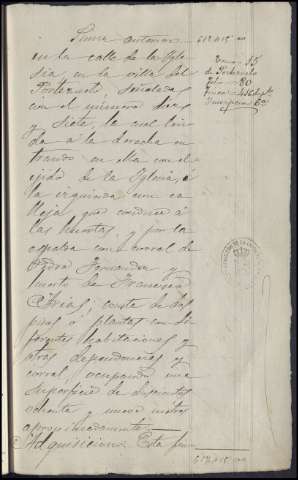 Suma anterior 612.415
en la calle de la Igle
sia, en la villa del
Portezuelo, señalada
con el número diez
y siete, la cual lin
da á la derecha en
trando en ella con el
ejido de la Iglesia, á
la izquierda con ca
lleja que conduce á
las huertas, y por la
espalda con corral de
Pedro Fernandez y
huerto de Francisco
Arias; consta de dos
pisos ó plantas con di
ferentes habitaciones y
otras dependencias y
corral, ocupando una
superficie de doscientos
ochenta y nueve metros
aproximadamente.
Adquisicion: Esta fin
Tomo 15
de Portezuelo
Folio 80
Finca
Inscripcion
612.415